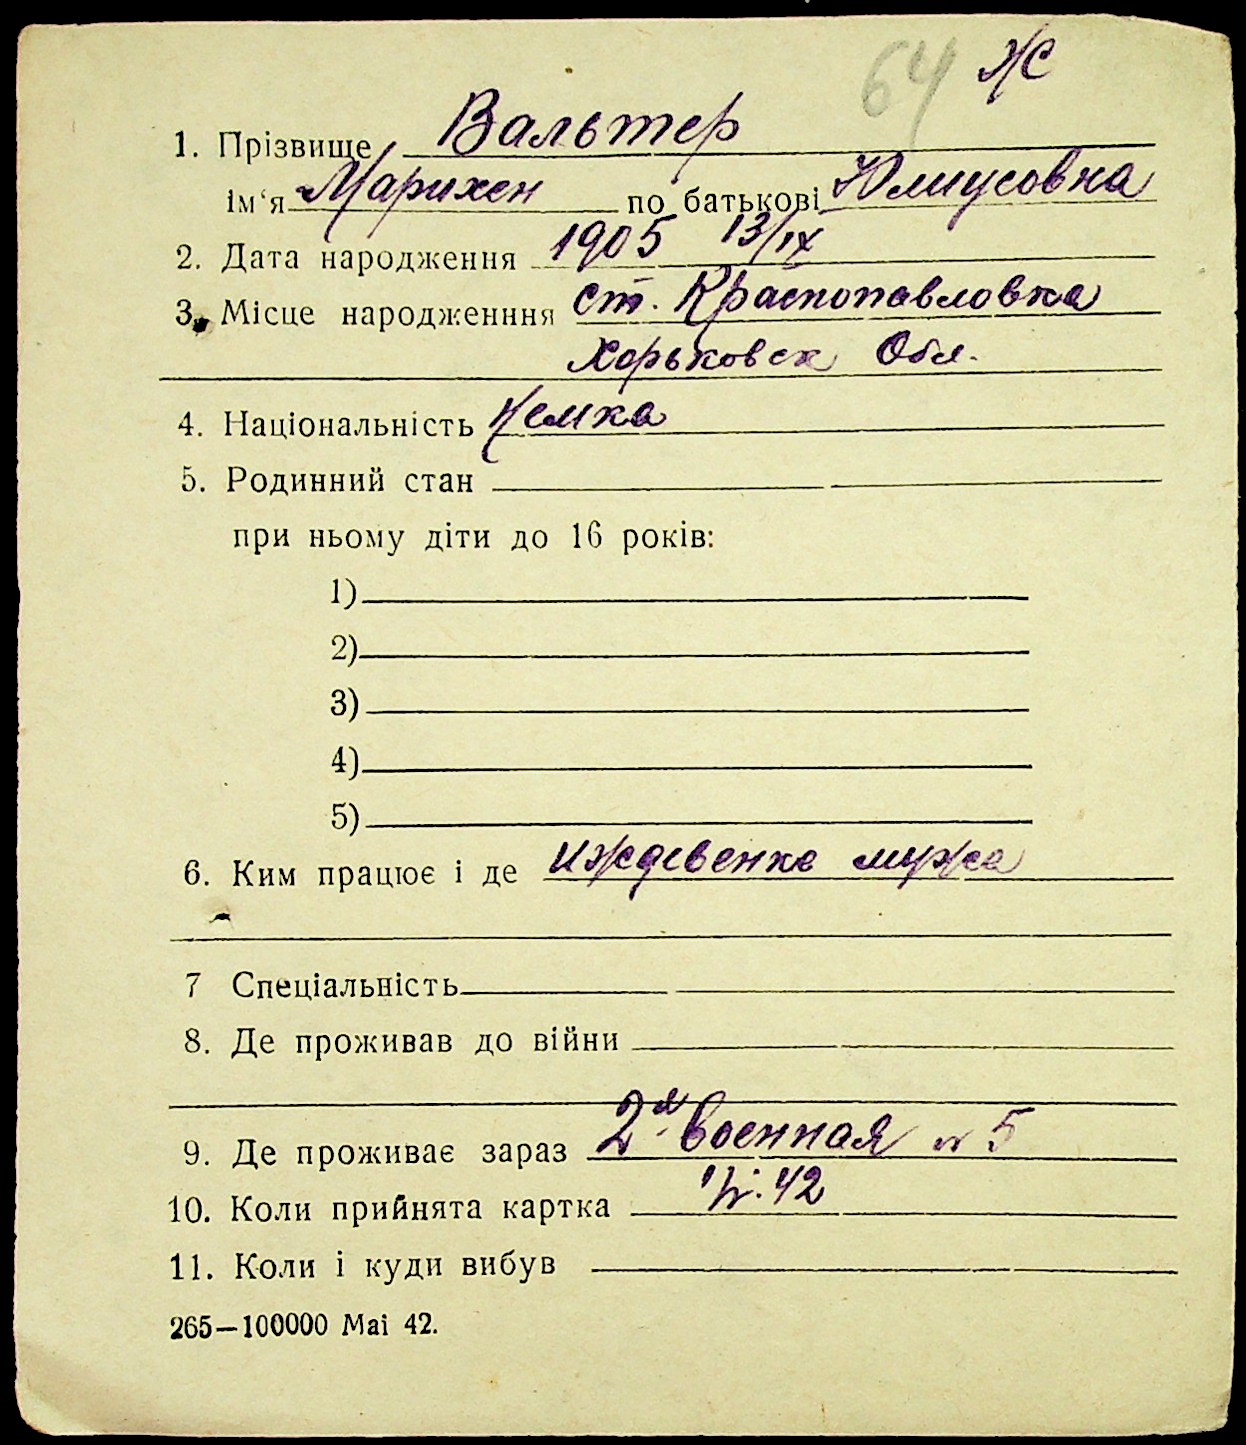 64 Ж
1. Прізвище Вальтер
ім‘я Марихен по батькові Юлиусовна
2. Дата народження 1905 13/IX
3. Місце народженння ст. Краснопавловка
Харьковск Обл.
4. Національність Немка
5. Родинний стан
при ньому діти до 16 років:
1)
2)
3)
4)
5)
6. Ким працює і де иждевенка мужа
7 Спеціальність
8. Де проживав до війни
9. Де проживає зараз 2я Военная № 5
10. Коли прийнята картка 42
11. Коли і куди вибув
265—100000 Маі 42.